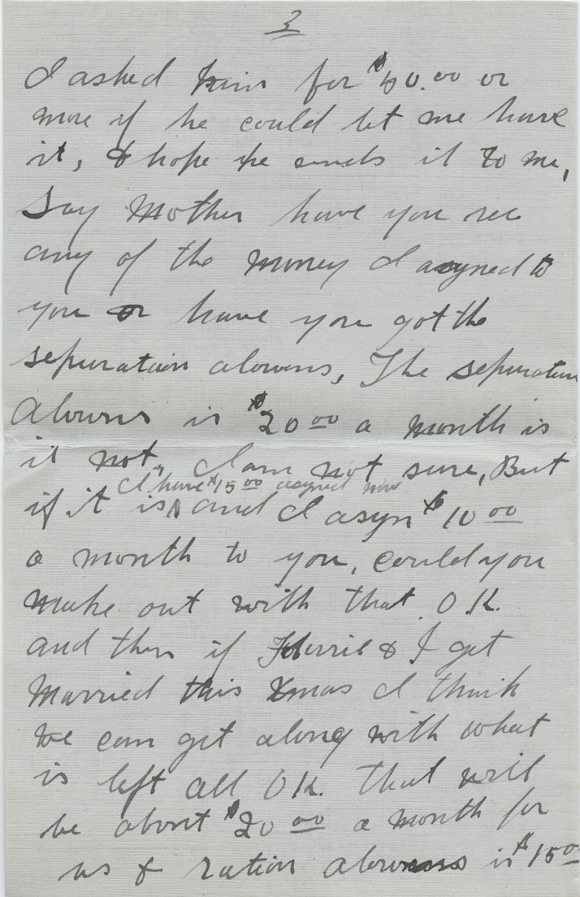 3
I asked him for $40.00 or
more if he could let me have
it, & hope he sends it to me,
Say Mother have you rec
any of the money I asyned to
you or have you got the
sepuration alowns, The sepuration
alowns is $20 00 a month is
it not, I am not sure, But
I have $15 00 asyned now
if it is and I asyn $10 00
a month to you, could you
make out with that O.K.
and then if & I get
Married this Xmas I think
we can get along with what
is left all OK. That will
be about $20 00 a month for
us & ration alowns is $15 00